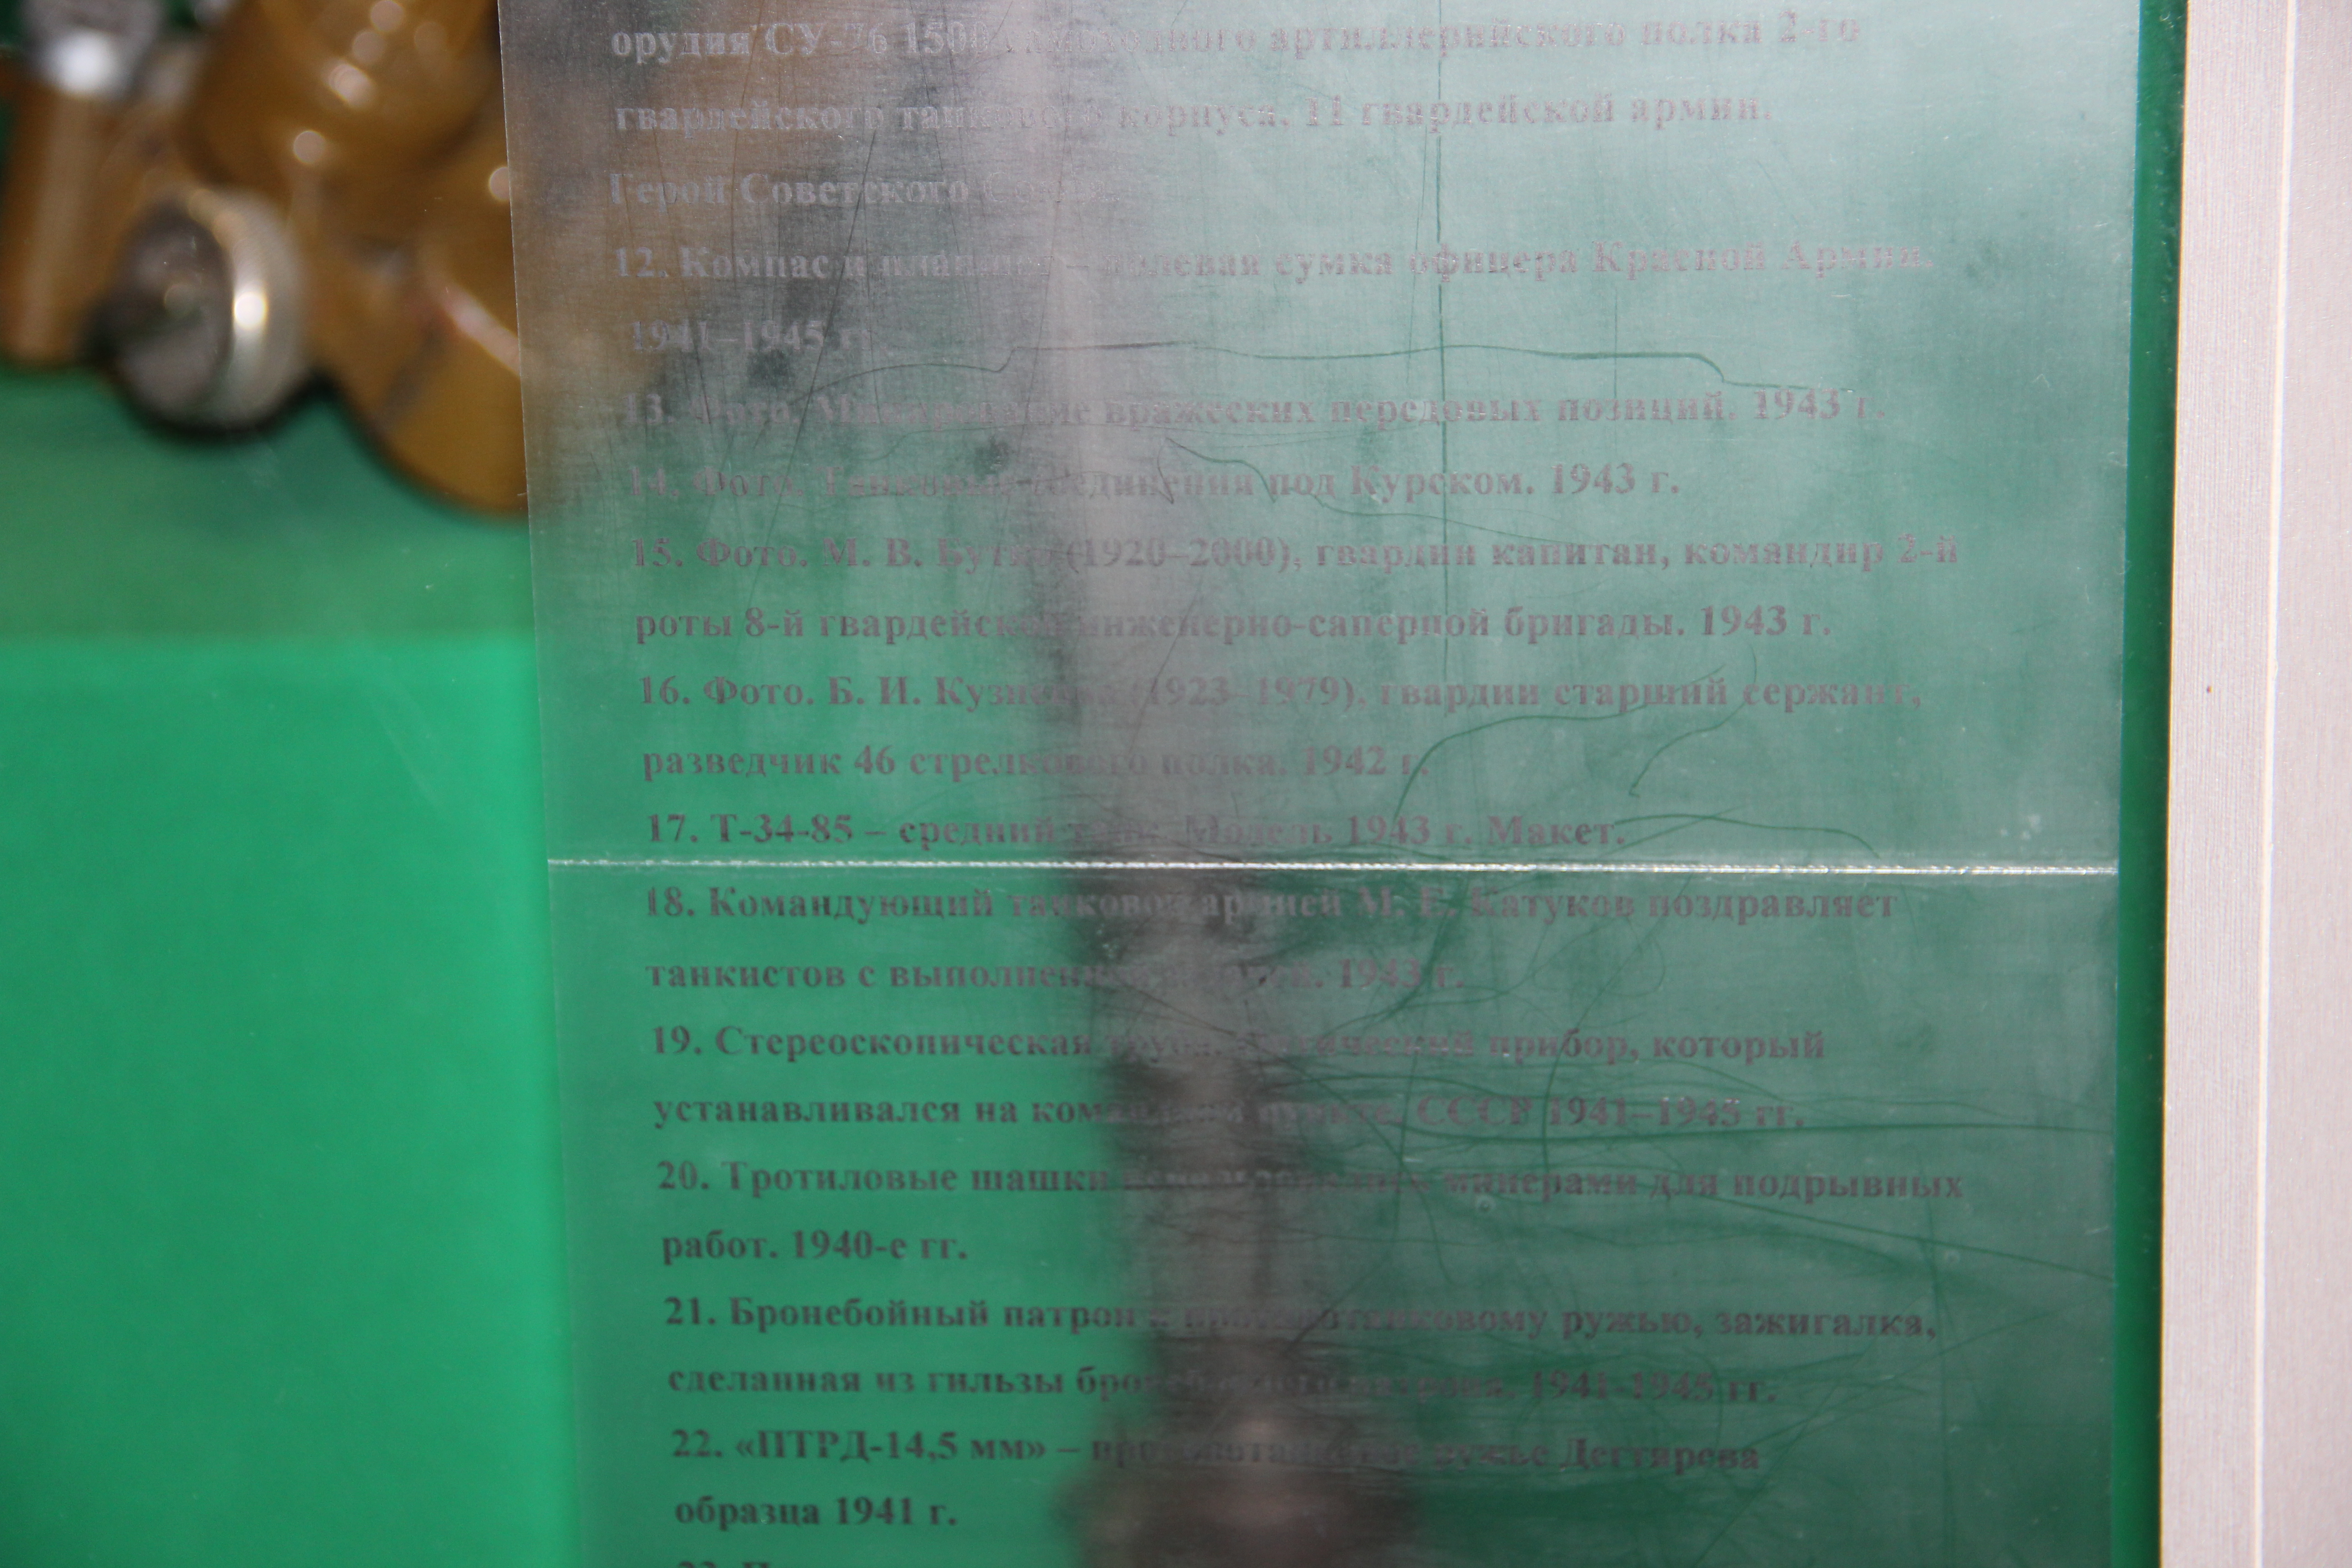 орудия СУ-76 1500 самоходного артиллерийского полка 2-го
гвардейского танкового корпуса. 11 гвардейской армии.
Герой Советского Союза.
12. Компас и планшет – полевая сумка офицера Красной Армии.
1941–1945 гг.
13. Фото. вражеских передовых позиций. 1943 г.
14. Фото. Танковые соединения под Курском. 1943 г.
15. Фото. М. В. (1920–2000), гвардии капитан, командир 2-й
роты 8-й гвардейской инженерно-саперной бригады. 1943 г.
16. Фото. Б. И. (1923–1979), гвардии старший сержант,
разведчик 46 стрелкового полка. 1942 г.
17. Т-34-85 – средний танк. Модель 1943 г. Макет.
18. Командующий танковой армией М. Е. Катуков поздравляет
танкистов с 1943 г.
19. Стереоскопическая труба, оптический прибор, который
устанавливался на командном пункте. СССР 1941–1945 гг.
20. Тротиловые шашки минерами для подрывных
работ. 1940-е гг.
21. Бронебойный патрон к противотанковому ружью, зажигалка,
сделанная из гильзы бронебойного патрона. 1941-1945 гг.
22. «ПТРД-14,5 мм» – противотанковое ружье Дегтярева
образца 1941 г.